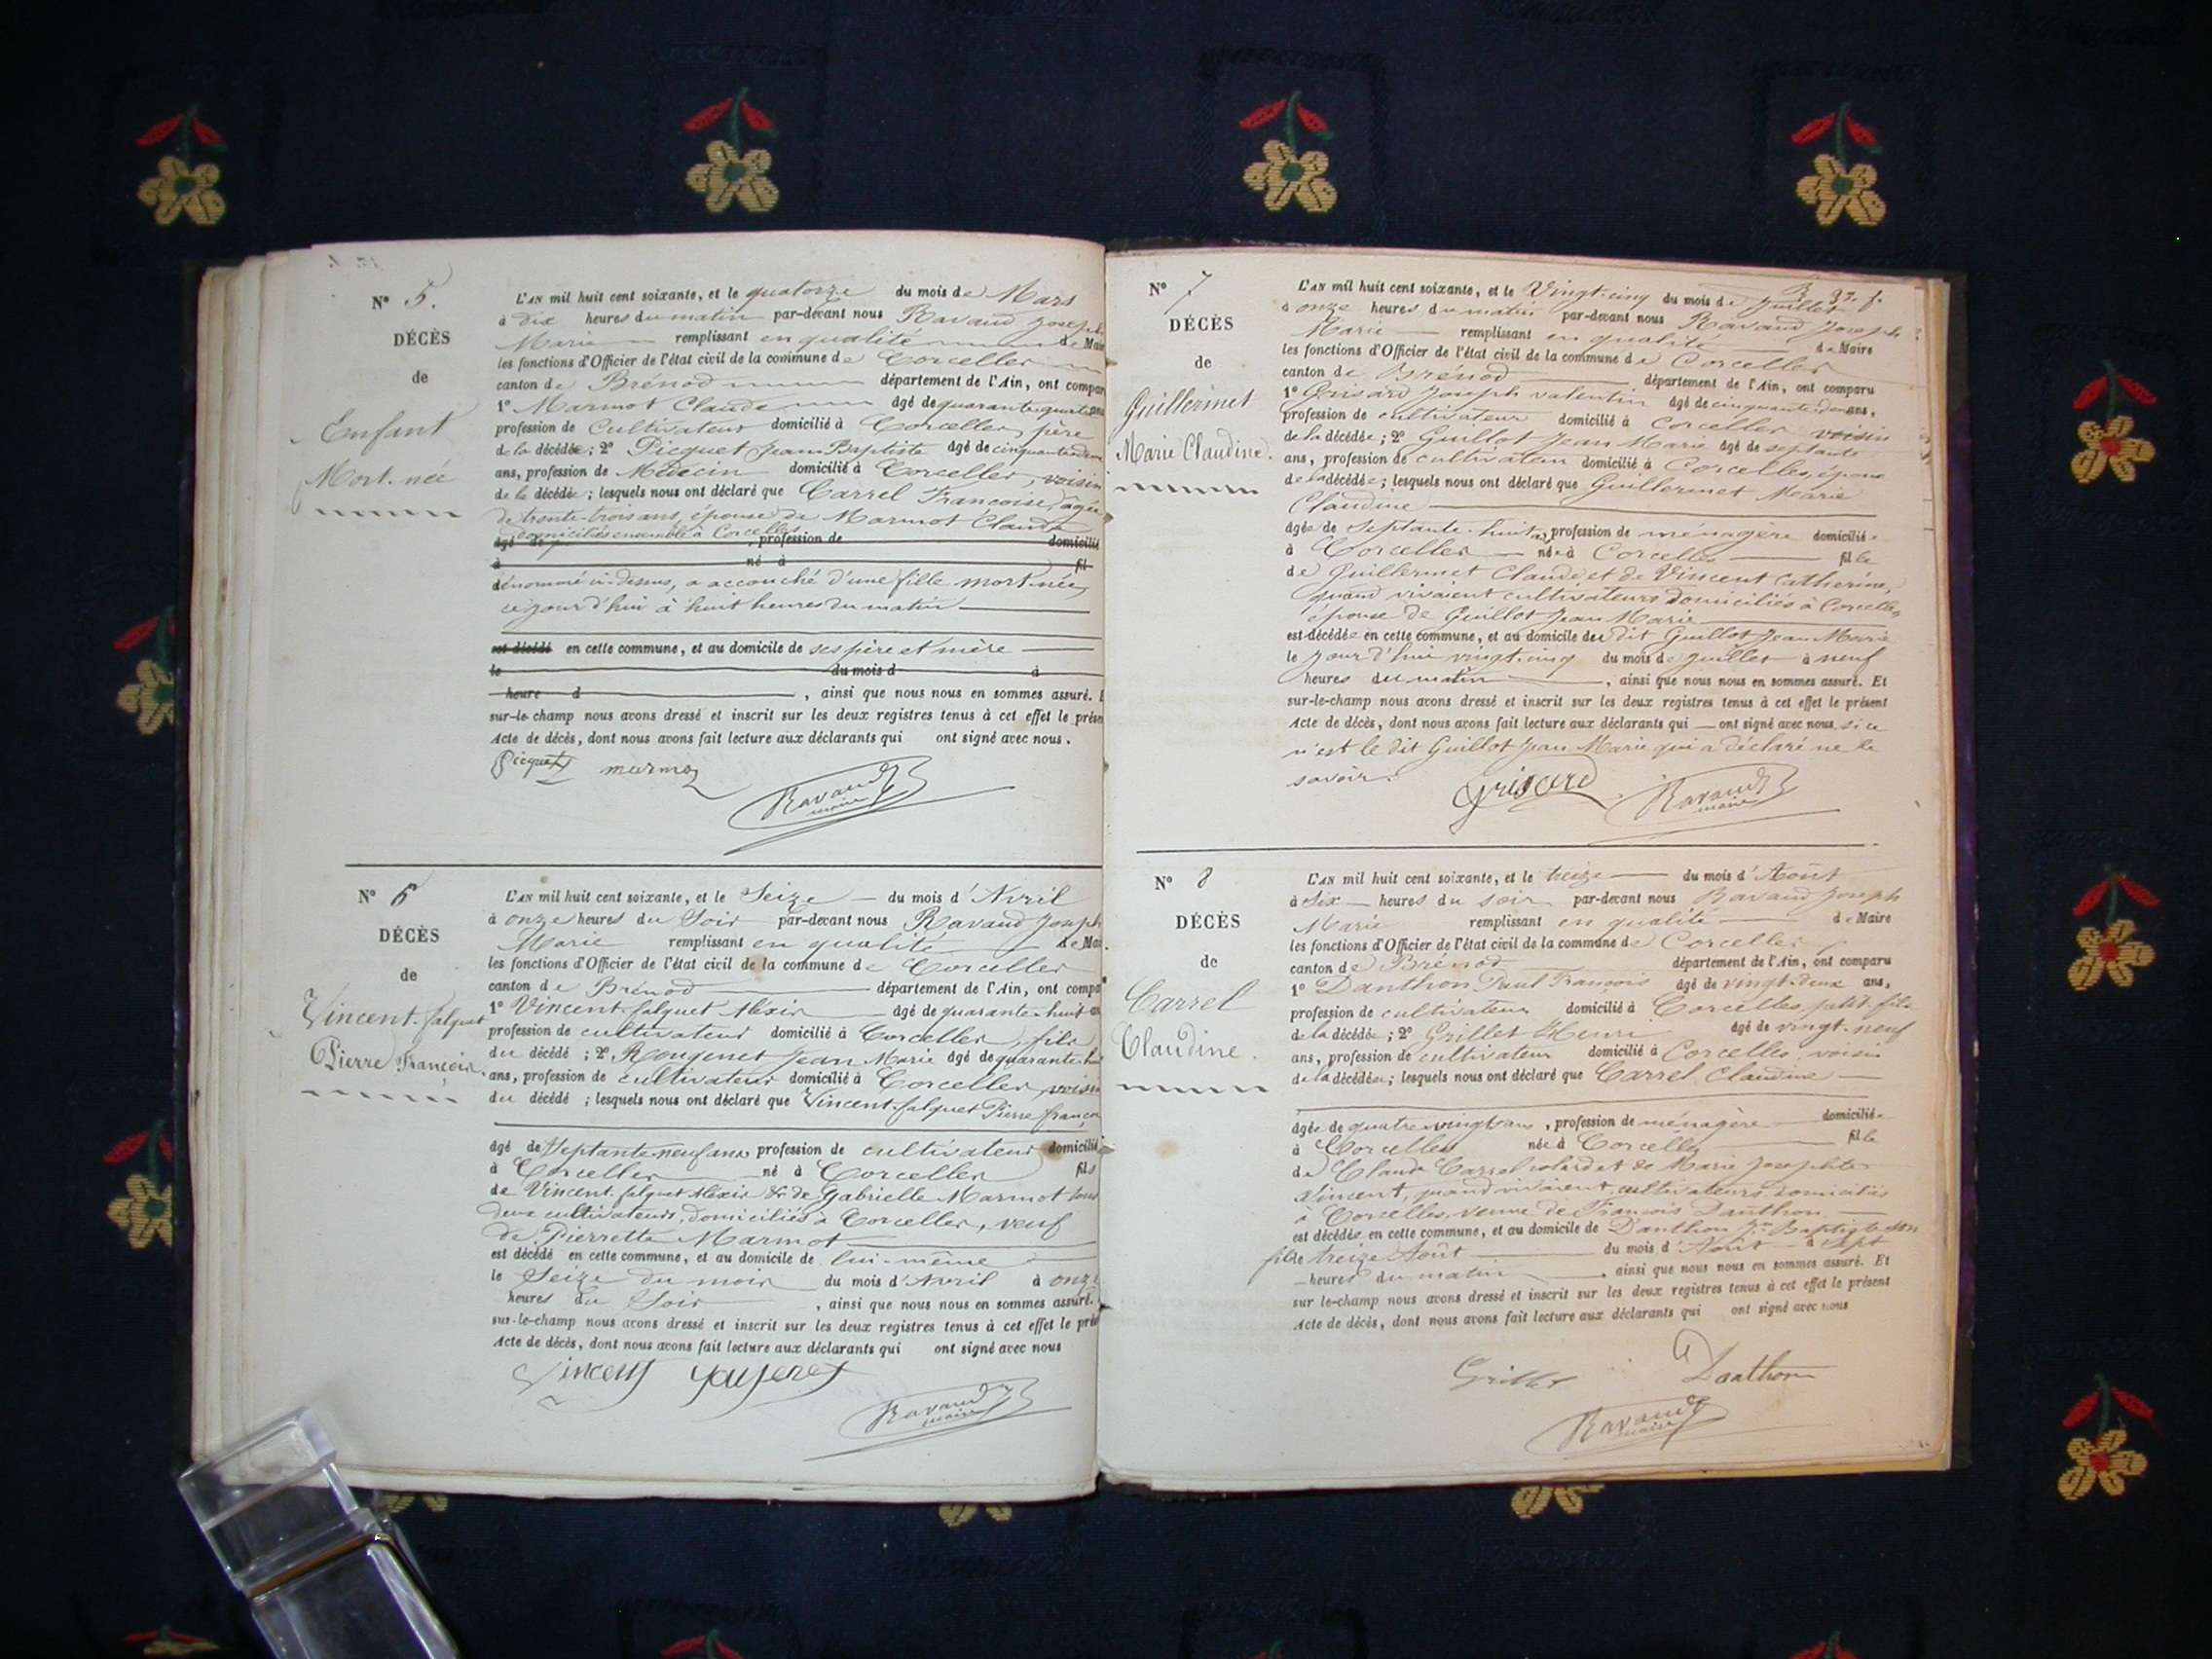 N° 5.
DÉCÈS
de
Enfant
Mort-née
L'AN mil huit cent soixante, et le quatorze du mois de Mars
à dix heures du matin par-devant nous Ravaud Joseph
Marie remplissant en qualité de Maire
les fonctions d'Officier de l'état civil de la commune de Corcelles
canton de Brénod département de l'Ain, ont compar
1° Marmot Claude âgé de quarante quatre ans
profession de Cultivateur domicilié à Corcelles, père
de la décédée; 2° Picquet Jean-Baptiste âgé de cinquante
ans, profession de Médecin domicilié à Corcelles, voisin
de la décédée; lesquels nous ont déclaré que Carrel Françoise, âgée
de trente-trois ans, épouse de Marmot Claude
domiciliés ensemble à Corcelles
âgé de , profession de domicilié
à né à fil
dénommé ci-dessus, a accouché d'une fille mort-née,
ce jour d'hui à huit heures du matin
est décédé en cette commune, et au domicile de ses père et mère
le du mois d à
heure d , ainsi que nous nous en sommes assuré. E
sur-le-champ nous avons dressé et inscrit sur les deux registres tenus à cet effet le présen
Acte de décès, dont nous avons fait lecture aux déclarants qui ont signé avec nous.
Picquet marmoz
Ravaud
maire
N° 6
DÉCÈS
de
Vincent-falquet
Pierre François.
L'AN mil huit cent soixante, et le Seize du mois d'Avril
à onze heures du Soir par-devant nous Ravaud Joseph
Marie remplissant en qualité de Mai
les fonctions d'Officier de l'état civil de la commune de Corcelles
canton de Brénod département de l'Ain, ont compa
1° Vincent-falquet Alexis âgé de quarante-huit an
profession de cultivateur domicilié à Corcelles, fils
du décédé; 2° Rougemet Jean Marie âgé de quarante-hu
ans, profession de cultivateur domicilié à Corcelles voisin
du décédé; lesquels nous ont déclaré que Vincent-falquet Pierre françoi
âgé de Septante-neuf ans profession de cultivateur domicilié
à Corcelles né à Corcelles fils
de Vincent-falquet Alexis & de Gabrielle Marmot tous
deux cultivateurs, domiciliés à Corcelles, veuf
de Pierrette Marmot
est décédé en cette commune, et au domicile de lui-même
le Seize du mois du mois d'Avril à onze
heures du Soir , ainsi que nous nous en sommes assuré.
sur-le-champ nous avons dressé et inscrit sur les deux registres tenus à cet effet le prés
Acte de décès, dont nous avons fait lecture aux déclarants qui ont signé avec nous
Vincent
Ravaud
maire
N° 7
DÉCÈS
de
Guillermet
Marie Claudine.
L'AN mil huit cent soixante, et le Vingt-cinq du mois de Juillet
à onze heures du matin par-devant nous Ravaud Joseph
Marie remplissant en qualité de Maire
les fonctions d'Officier de l'état civil de la commune de Corcelles
canton de Brénod département de l'Ain, ont comparu
1° Grisard Joseph valentin âgé de cinquante-deux ans,
profession de cultivateur domicilié à Corcelles voisin
de la décédée; 2° Guillot Jean Marie âgé de septante
ans, profession de cultivateur domicilié à Corcelles, époux
de la décédée; lesquels nous ont déclaré que Guillermet Marie
Claudine
âgée de septante-huit ans, profession de ménagère domiciliée
à Corcelles née à Corcelles fille
de Guillermet Claude et de Vincent Catherine,
quand vivaient cultivateurs domiciliés à Corcelles,
épouse de Guillot Jean Marie
est décédée en cette commune, et au domicile du dit Guillot Jean Marie
le jour d'hui vingt-cinq du mois de juillet à neuf
heures du matin , ainsi que nous nous en sommes assuré. Et
sur-le-champ nous avons dressé et inscrit sur les deux registres tenus à cet effet le présent
Acte de décès, dont nous avons fait lecture aux déclarants qui ont signé avec nous, si ce
n'est le dit Guillot Jean Marie qui a déclaré ne le
savoir.
Grisard
Ravaud
maire
N° 8
DÉCÈS
de
Carrel
Claudine.
L'AN mil huit cent soixante, et le treize du mois d'Août
à Six heures du soir par-devant nous Ravaud Joseph
Marie remplissant en qualité de Maire
les fonctions d'Officier de l'état civil de la commune de Corcelles
canton de Brénod département de l'Ain, ont comparu
1° Danthon Paul François âgé de vingt-deux ans,
profession de cultivateur domicilié à Corcelles, petit-fils
de la décédée; 2° Grillet Henri âgé de vingt-neuf
ans, profession de cultivateur domicilié à Corcelles, voisin
de la décédée; lesquels nous ont déclaré que Carrel Claudine
âgée de quatre-vingt ans, profession de ménagère domiciliée
à Corcelles née à Corcelles fille
de Claude Carrel et de Marie Josephte
Vincent, quand vivaient cultivateurs domiciliés
à Corcelles, veuve de François Danthon
est décédée en cette commune, et au domicile de Danthon Jn Baptiste son
fils le treize Août du mois d'Août à Sept
heures du matin , ainsi que nous nous en sommes assuré. Et
sur le-champ nous avons dressé et inscrit sur les deux registres tenus à cet effet le présent
Acte de décès, dont nous avons fait lecture aux déclarants qui ont signé avec nous
Grillet Danthon
Ravaud
maire